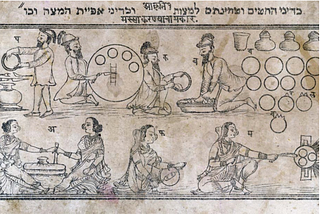 כדיני החטים ושמירתם למצות आकृति וכדיני אפיית המצה וכו״
मस्साकरण्याचाप्रकार.
अ